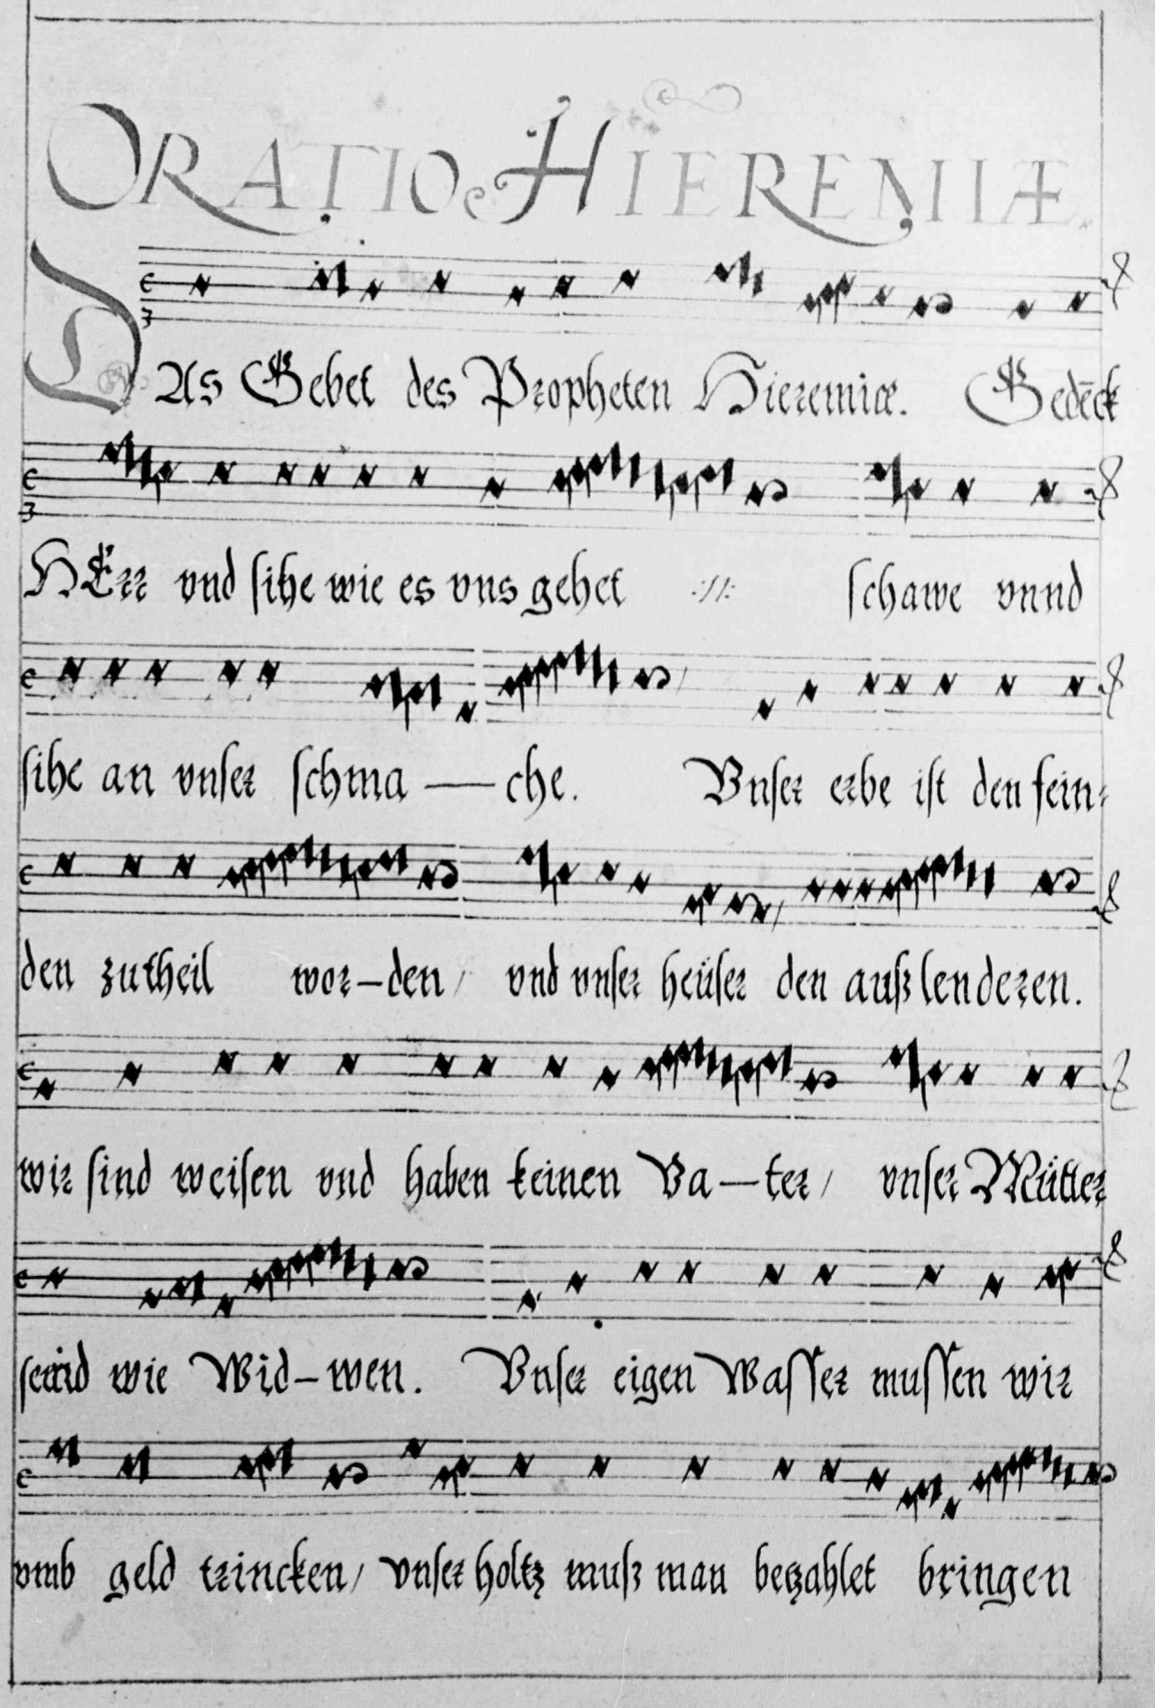 ORATIO HIEREMIÆ.
DAs Gebet des Propheten Hieremiæ. Gedēck
HErr vnd sihe wie es vns gehet :||: schawe vnnd
sihe an vnser schma — che. Vnser erbe ist den fein⸗
den zutheil wor–den / vnd vnser heüser den außlenderen.
wir sind weisen vnd haben keinen Va — ter / vnser Mütter
seind wie Wid–wen. Vnser eigen Wasser mussen wir
vmb geld trincken / vnser holtz muß man betzahlet bringen